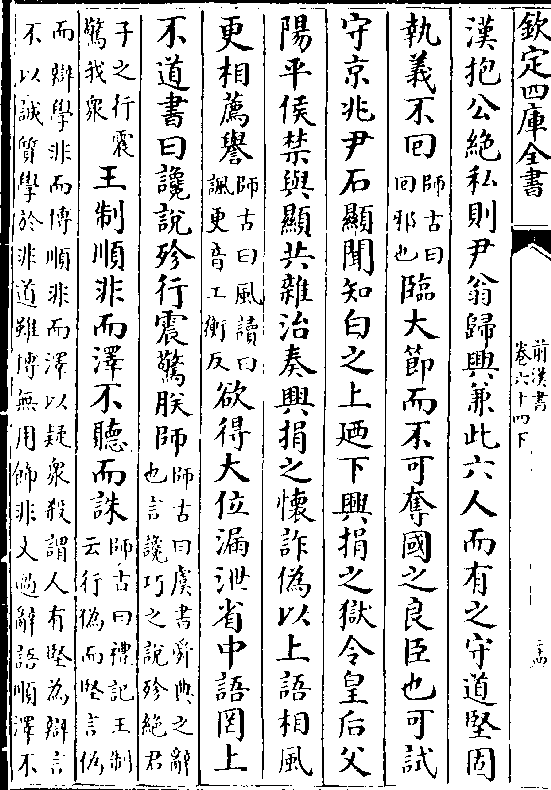 欽定四庫全書
前漢書
卷六十四下
漢抱公絶私則尹翁歸興兼此六人而有之守道堅固
執義不囘師古曰囘邪也臨大節而不可奪國之良臣也可試
守京兆尹石顯聞知白之上廼下興捐之獄令皇后父
陽平侯禁與顯共雜治奏興捐之懷詐偽以上語相風
更相薦譽師古曰風讀曰諷更音工衡反欲得大位漏泄省中語罔上
不道書曰讒説殄行震驚朕師師古曰虞書舜典之辭也言讒巧之說殄絶君
子之行震驚我衆王制順非而澤不聽而誅師古曰禮記王制云行偽而堅言偽
而辯學非而博順非而澤以疑衆殺謂人有堅為辯言
不以誠質學於非道雖博無用飾非文過辭語順澤不